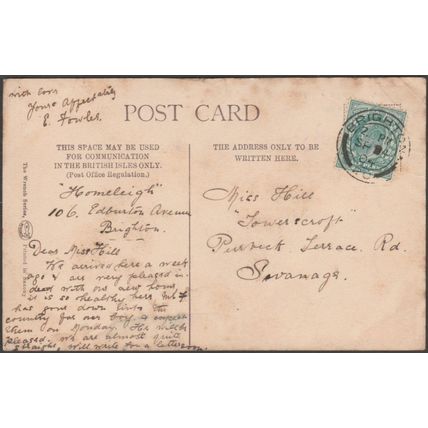 with love
Yours Affectately
E. Fowles.
POST CARD
THIS SPACE MAY BE USED
FOR COMMUNICATION
IN THE BRITISH ISLES ONLY.
(Post Office Regulation.)
THE ADDRESS ONLY TO BE
WRITTEN HERE.
"Homeleigh"
106, Edburton Avenue
Brighton.
Dear Miss Hill
We arrived here a week
ago & are very pleased in-
deed with our new home,
it is so healthy here. Mr F
has gone down into the
country for our boy, & expect
them on Monday. He will be
pleased. We are almost quite
straight, will write you a letter soon.
Miss Hill
"Towerscroft"
Purbeck Terrace. Rd.
Swanage.
BRIGHTON
The Wrench Series,
Printed in Saxony